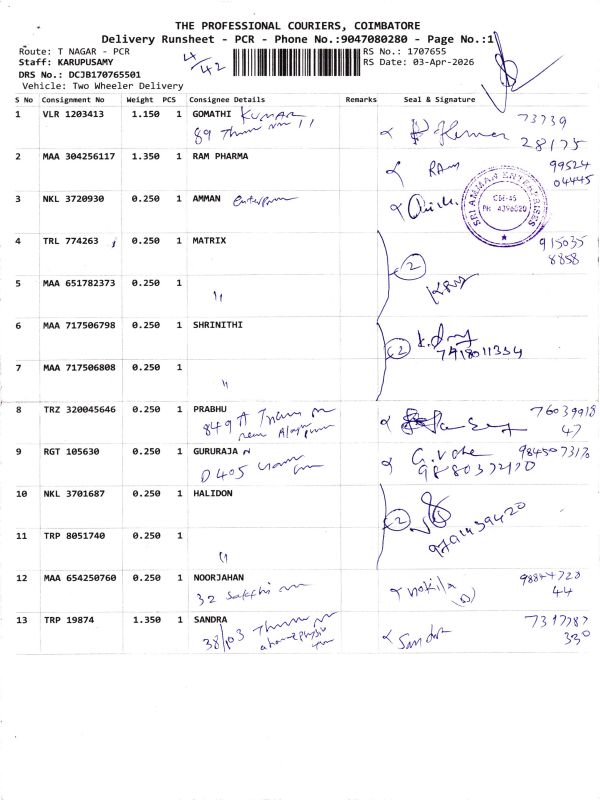 THE PROFESSIONAL COURIERS, COIMBATORE
Delivery Runsheet - PCR - Phone No.:9047080280 - Page No.:1
Route: T NAGAR - PCR
RS No.: 1707655
Staff: KARUPUSAMY
4/42
RS Date: 03-Apr-2026
DRS No.: DCJB170765501
Vehicle: Two Wheeler Delivery
S No Consignment No Weight PCS Consignee Details Remarks Seal & Signature
1 VLR 1203413 1.150 1 GOMATHI KUMAR 73739
89 28175
2 MAA 304256117 1.350 1 RAM PHARMA RAM 99524
04445
3 NKL 3720930 0.250 1 AMMAN
SRI AMMAN ENTERPRISES
CBE-45
PH: 4396020
4 TRL 774263 0.250 1 MATRIX 915035
8858
2
5 MAA 651782373 0.250 1
"
6 MAA 717506798 0.250 1 SHRINITHI
2 7418011334
7 MAA 717506808 0.250 1
"
8 TRZ 320045646 0.250 1 PRABHU 76039918
849 A 47
near
9 RGT 105630 0.250 1 GURURAJA N 9845073176
D 405
10 NKL 3701687 0.250 1 HALIDON
2 9791439420
11 TRP 8051740 0.250 1
"
12 MAA 654250760 0.250 1 NOORJAHAN 98844728
32 44
13 TRP 19874 1.350 1 SANDRA 7317787
38/103 Sandra 330